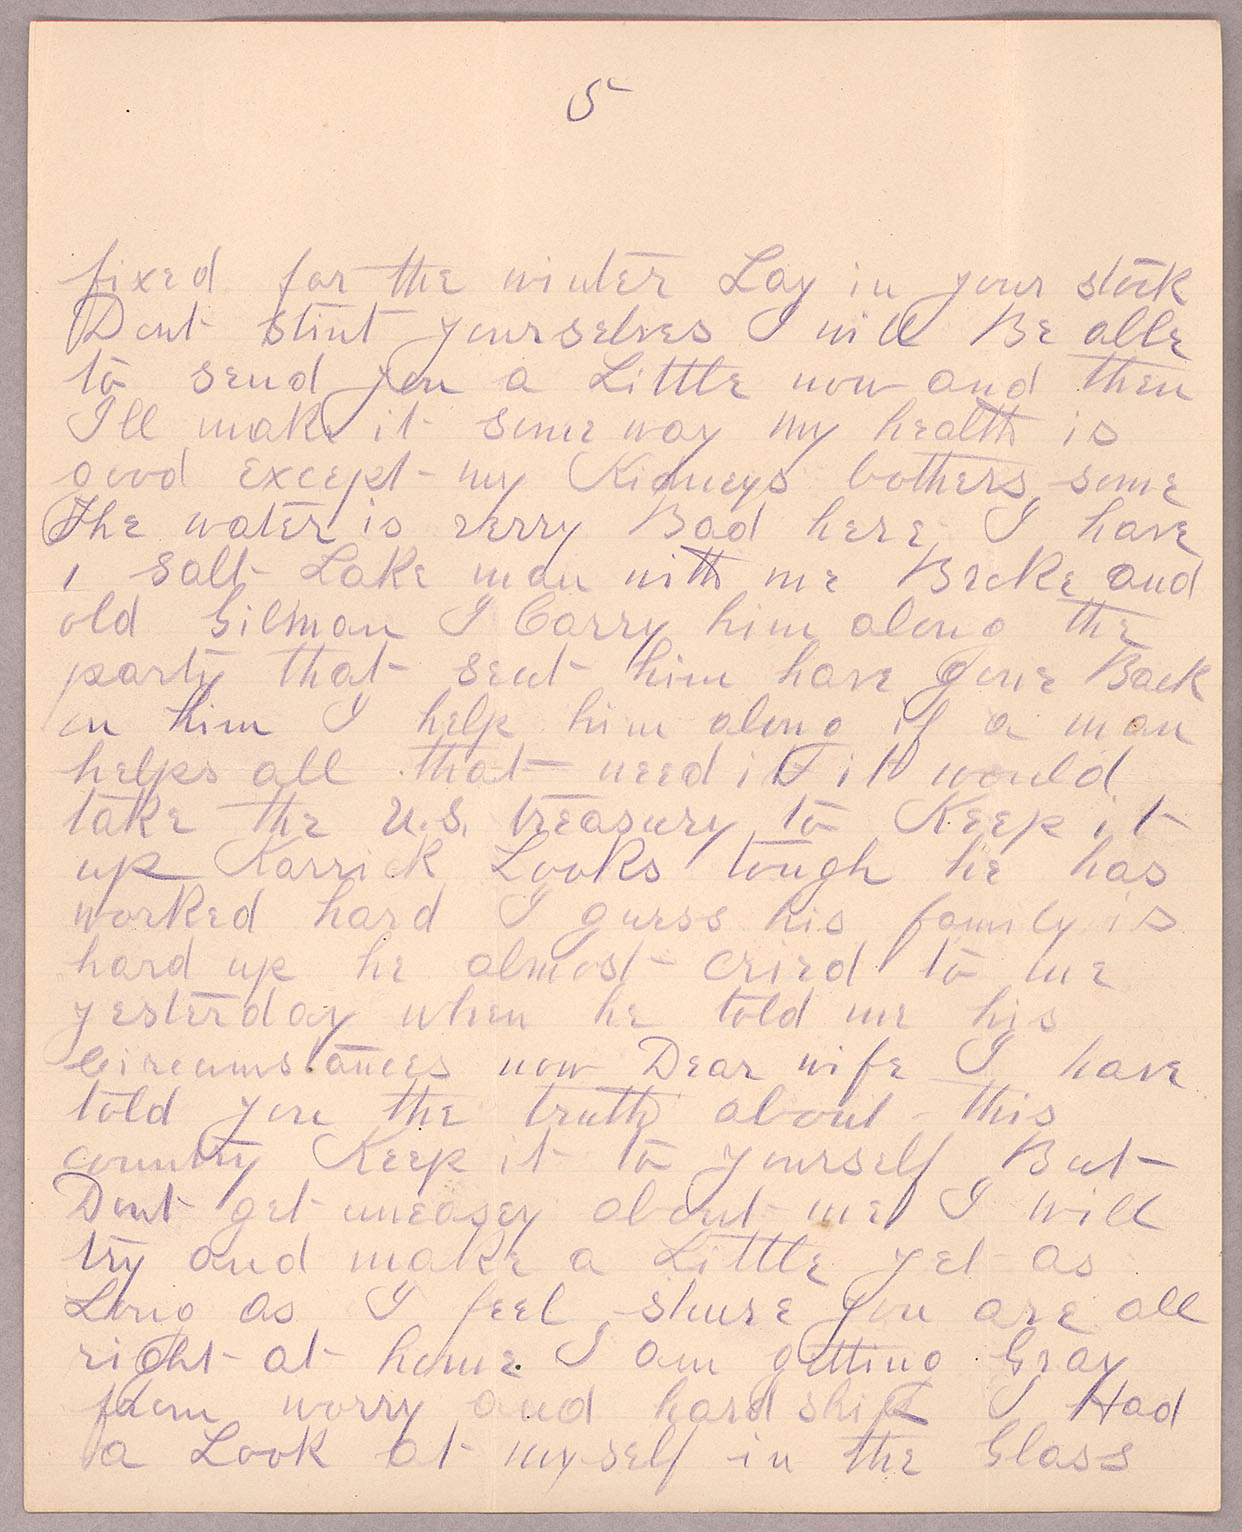 5
fixed for the winter Lay in your stock
Dont stint yourselves I will Be able
to send you a Little now and then
I'll make it some way my health is
good except my Kidneys bothers some
The water is verry Bad here I have
1 Salt Lake man with me Broke and
old Gilman I Carry him along the
party that sent him have gone Back
on him I help him along if a man
helps all that need it it would
take the U.S. treasury to Keep it
up Karrick Looks tough he has
worked hard I guess his family is
hard up he almost cried to me
yesterday when he told me his
Circumstances now Dear wife I have
told you the truth about this
country Keep it to yourself But
Dont get uneasey about me I will
try and make a Little yet as
Long as I feel shure you are all
right at home I am getting Gray
from worry and hardship I Had
a Look at myself in the Glass